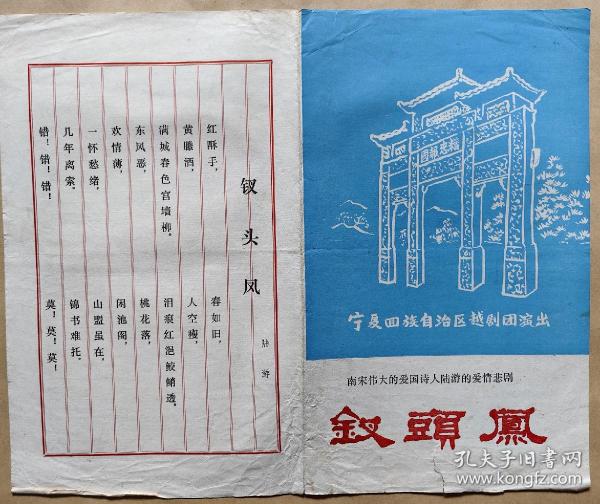 钗头凤
陆游
红酥手，
黄縢酒，
满城春色宫墙柳。
东风恶，
欢情薄，
一怀愁绪，
几年离索。
错！错！错！
春如旧，
人空瘦，
泪痕红浥鲛绡透。
桃花落，
闲池阁，
山盟虽在，
锦书难托。
莫！莫！莫！
宁夏回族自治区越剧团演出
南宋伟大的爱国诗人陆游的爱情悲剧
釵頭鳳
孔夫子旧书网
www.kongfz.com